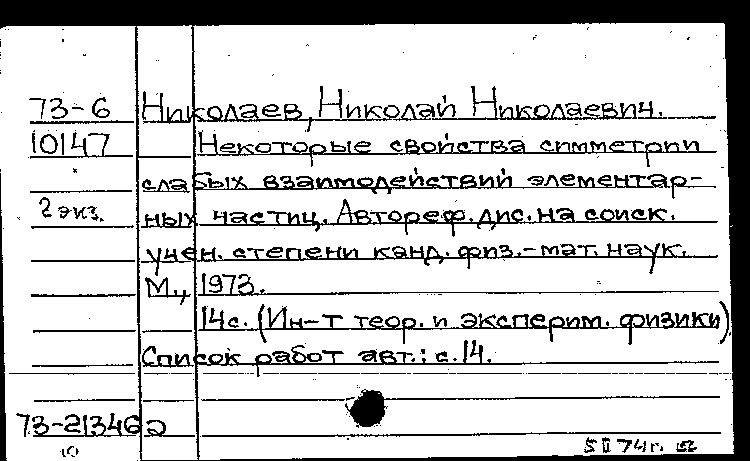 73-6 Николаев, Николай Николаевич.
10147 Некоторые свойства симметрии
слабых взаимодействий элементар-
2 экз. ных частиц. Автореф. дис. на соиск.
учен. степени канд. физ.-мат. наук.
М., 1973.
14с. (Ин-т теор. и эксперим. физики)
Список работ авт.: с. 14.
73-21346
10
5 II 74 г.